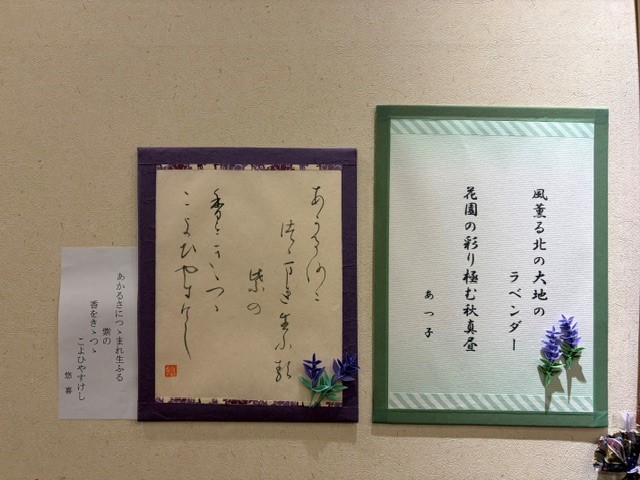 風薫る北の大地の
ラベンダー
花園の彩り極む秋真昼
あつ子
あかるさに
つゝまれ生ふる
紫の
香をきゝつゝ
こよひやすけし
あかるさにつゝまれ生ふる
紫の
香をきゝつゝ
こよひやすけし
悠喜